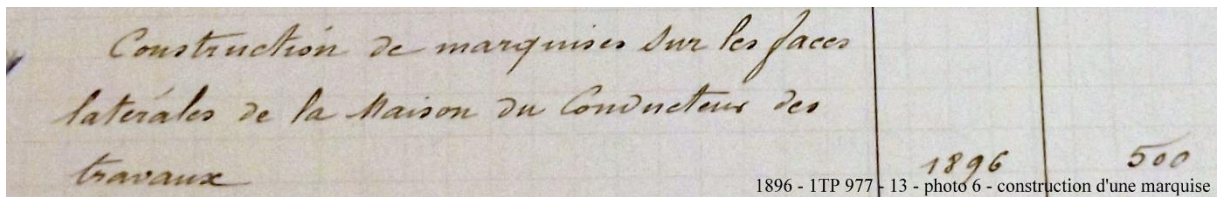 Construction de marquises sur les faces
latérales de la Maison du Conducteur des
travaux 1896 500
1896 - 1TP 977 - 13 - photo 6 - construction d'une marquise